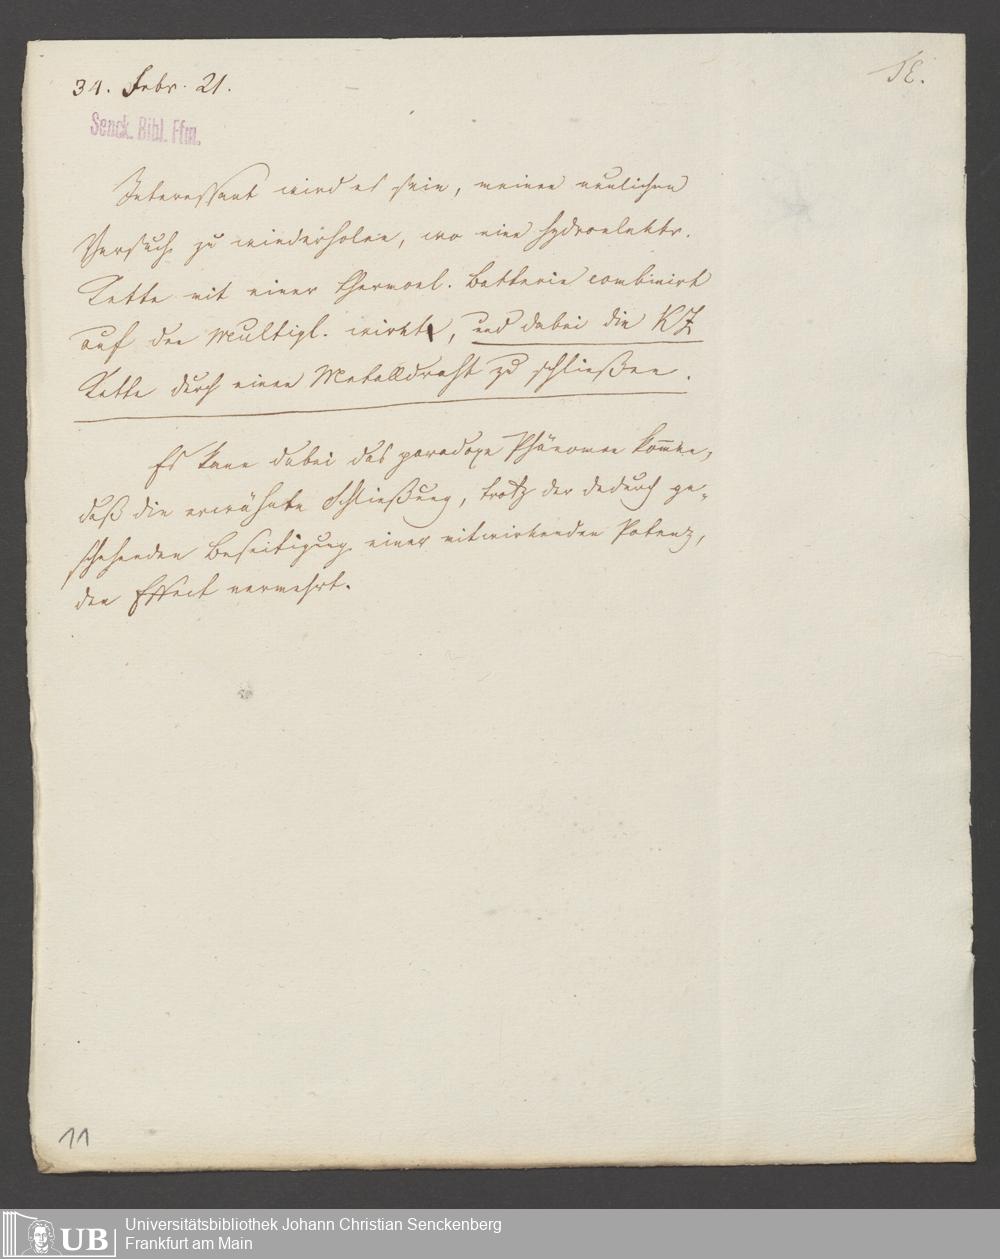 34. Febr. 21.
TE.
Senck. Bibl. Ffm.
Interessant wird es sein, meinen neulichen
Versuch zu wiederholen, wo eine hydroelektr.
Kette mit einer thermoel. Batterie combinirt
auf den Multipl. wirkt, und dabei die KZ
Kette durch einen Metalldraht zu schließen.
Es kann dabei das paradoxe Phänomen kommen,
daß die erwähnte Schließung, trotz der dadurch ge-
schehenden Beseitigung einer mitwirkenden Potenz,
den Effect vermehrt.
11
UB
Universitätsbibliothek Johann Christian Senckenberg
Frankfurt am Main